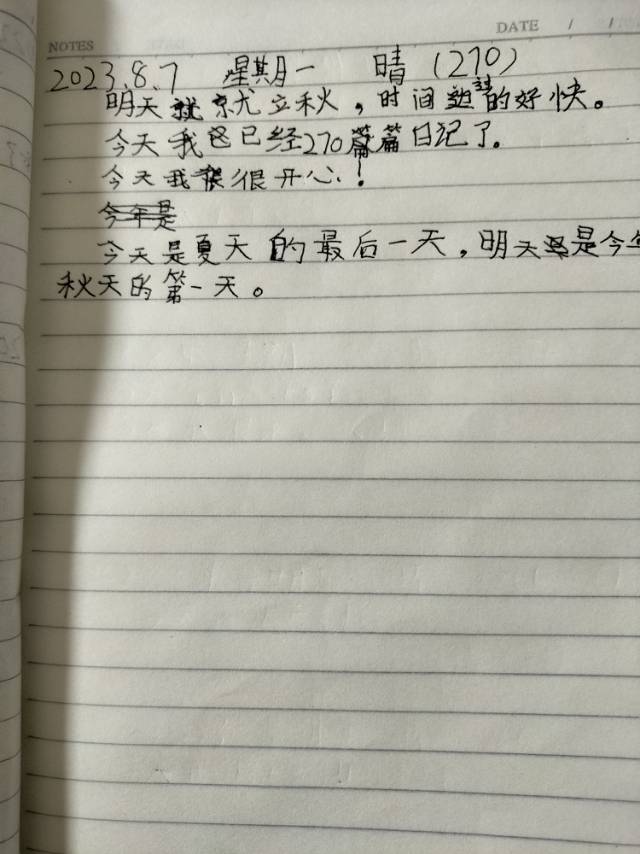 NOTES
DATE / /
2023.8.7 星期一 晴 (270)
明天就立秋，时间的好快。
今天我已经270篇日记了。
今天我很开心！
今年是
今天是夏天的最后一天，明天是今年
秋天的第一天。